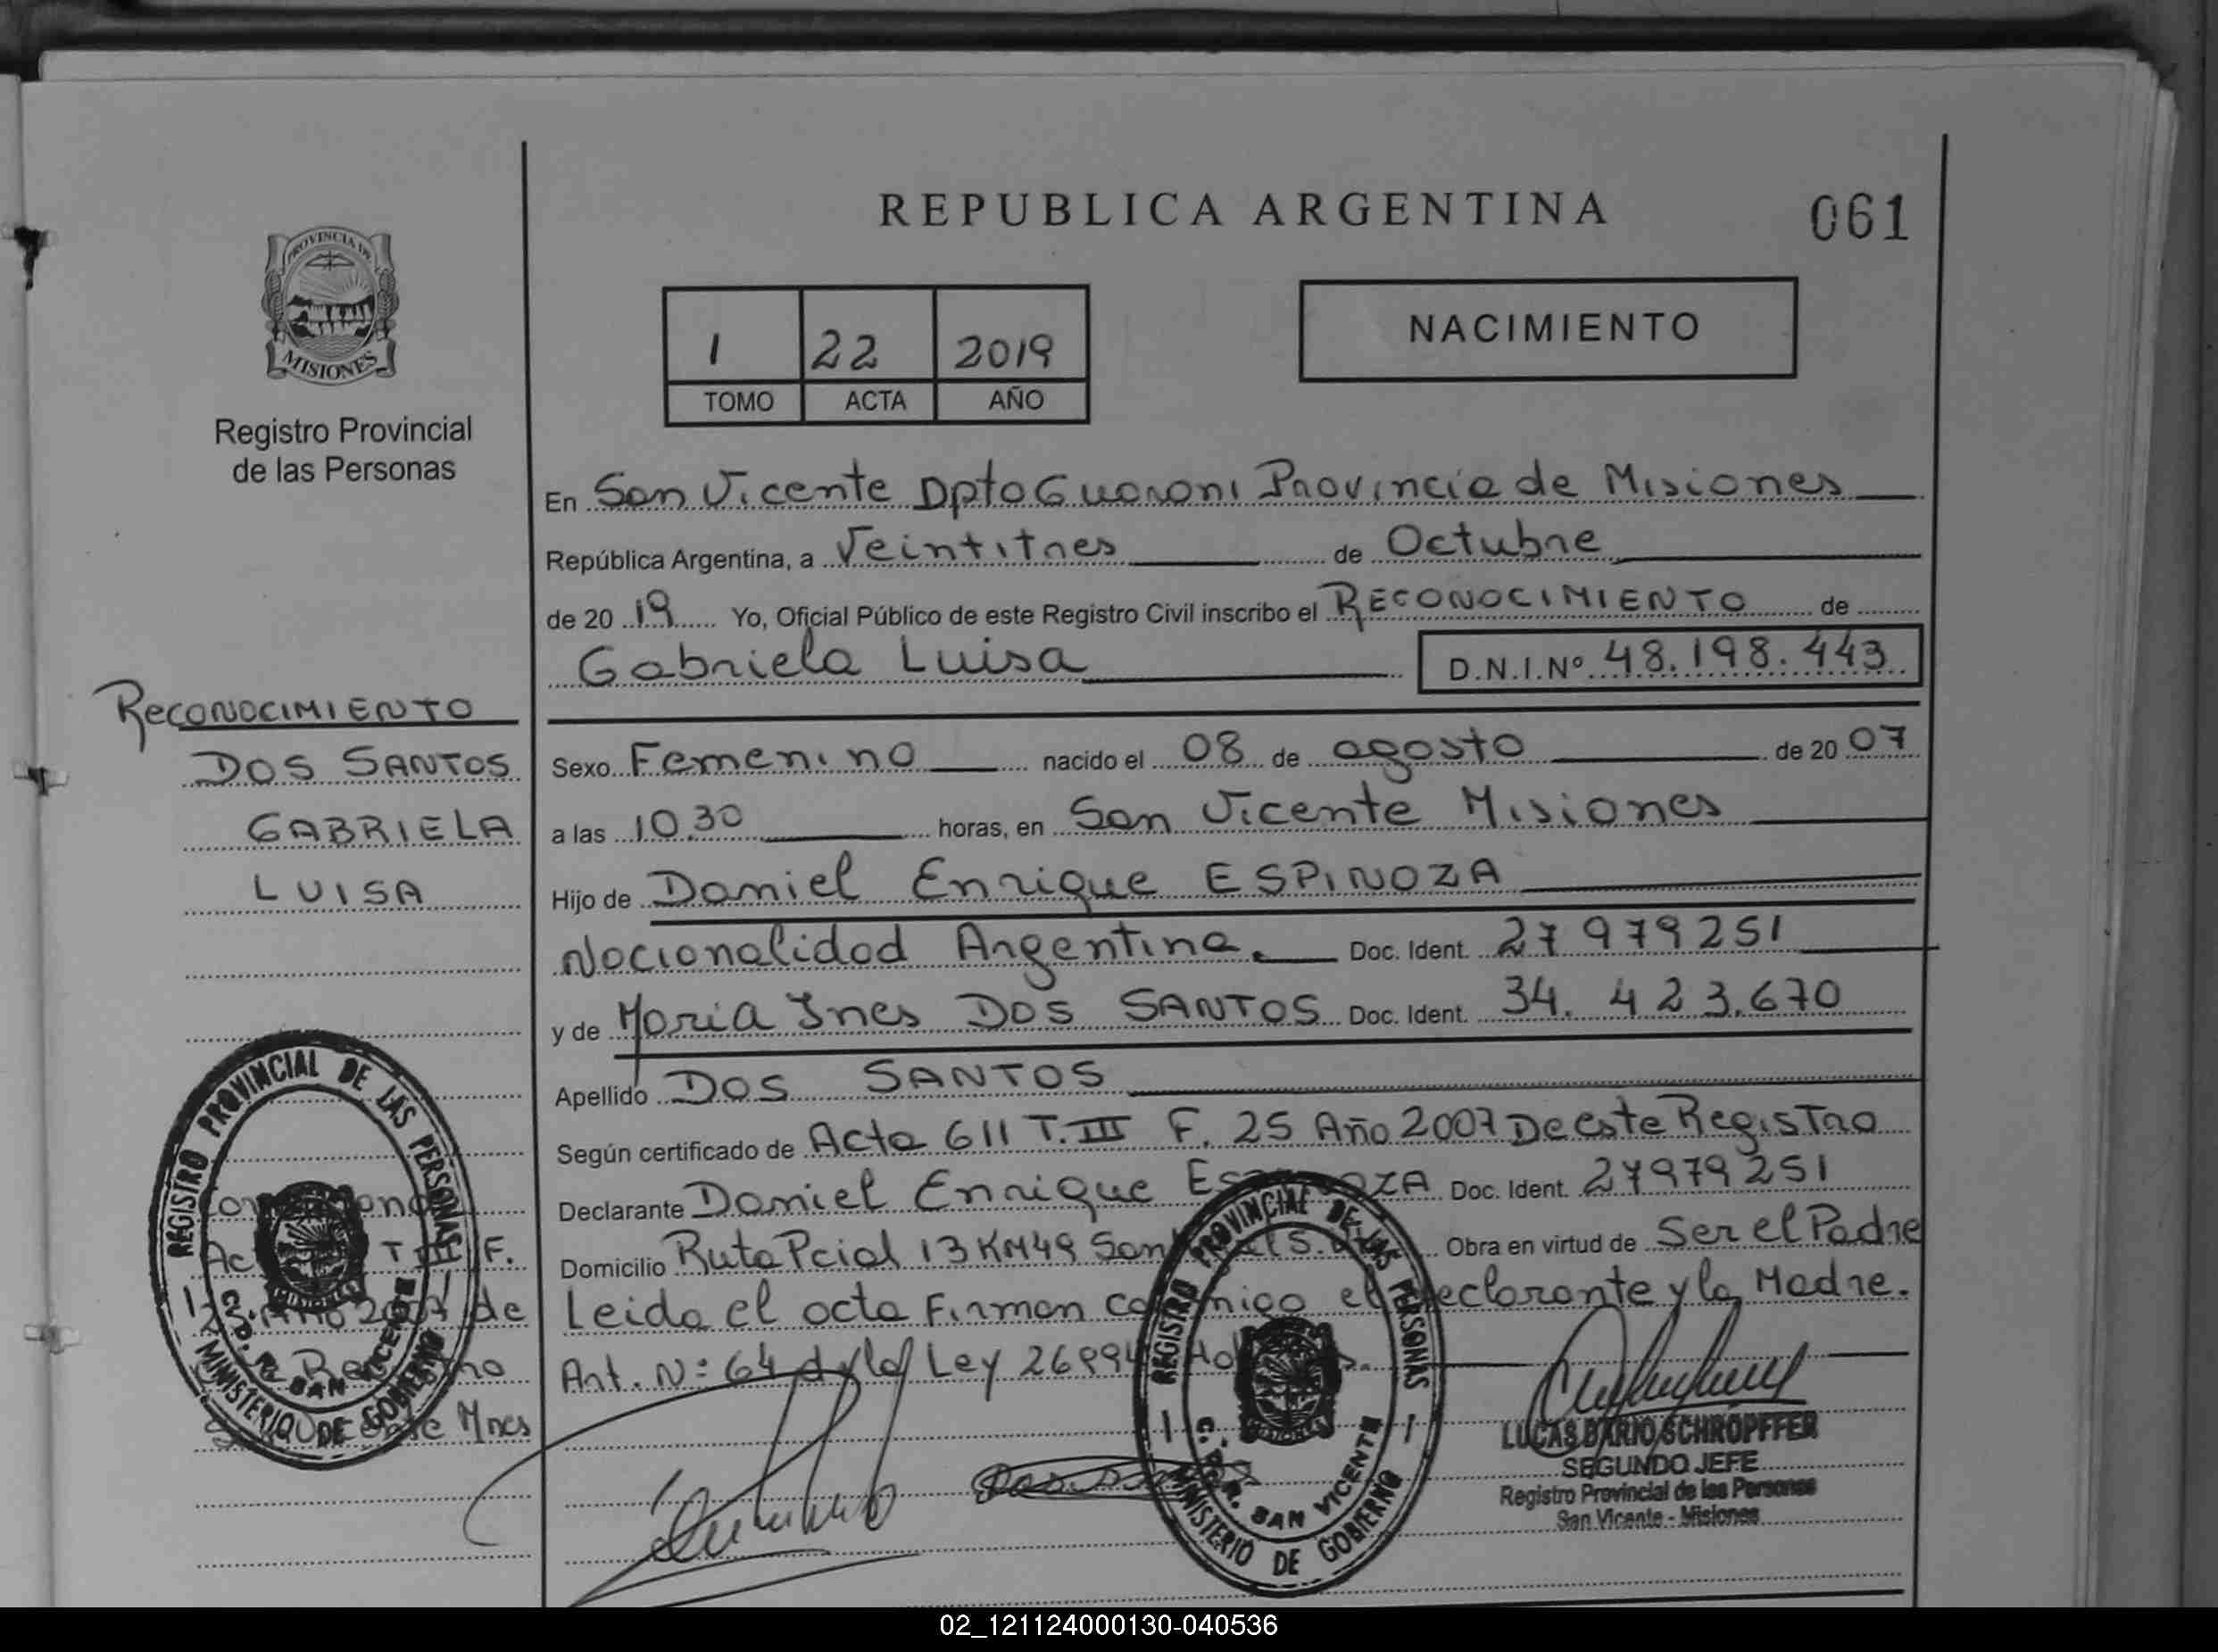 REPUBLICA ARGENTINA
061
PROVINCIA DE
MISIONES
Registro Provincial
de las Personas
1 22 2019
TOMO ACTA AÑO
NACIMIENTO
En San Vicente Dpto Guarani Provincia de Misiones
República Argentina, a Veintitres de Octubre
de 2019 Yo, Oficial Público de este Registro Civil inscribo el RECONOCIMIENTO de
Gabriela Luisa D.N.I.Nº 48.198.443
RECONOCIMIENTO
DOS SANTOS
GABRIELA
LUISA
Sexo Femenino nacido el 08 de agosto de 2007
a las 10.30 horas, en San Vicente Misiones
Hijo de Daniel Enrique ESPINOZA
Nacionalidad Argentina. Doc. Ident. 27979251
y de Maria Ines DOS SANTOS Doc. Ident. 34.423.670
Apellido DOS SANTOS
Según certificado de Acta 611 T.III F. 25 Año 2007 De este Registro
Declarante Daniel Enrique ESPINOZA Doc. Ident. 27979251
Domicilio Ruta Pcial 13 KM49 Obra en virtud de Ser el Padre
Leida el acta Firman conmigo el declarante y la Madre.
Art. N: 64 d/la Ley 26994
F.
Año 2007 de
Mnes
REGISTRO PROVINCIAL DE LAS PERSONAS
SAN VICENTE
MINISTERIO DE GOBIERNO
REGISTRO PROVINCIAL DE LAS PERSONAS
C.P.R. SAN VICENTE
MINISTERIO DE GOBIERNO
LUCAS DARIO SCHROPFFER
SEGUNDO JEFE
Registro Provincial de las Personas
San Vicente - Misiones
02_121124000130-040536